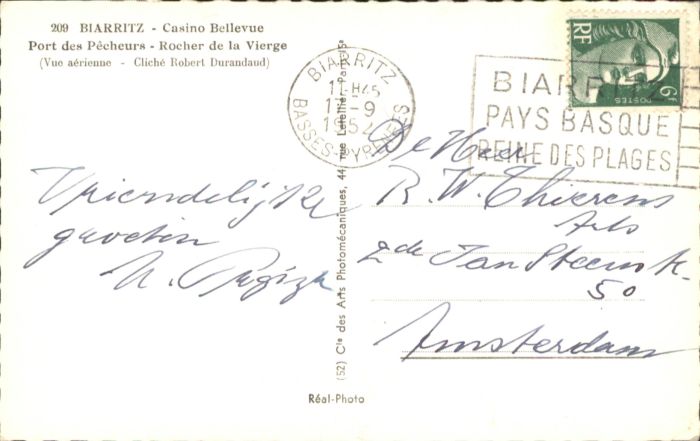 209 BIARRITZ - Casino Bellevue
Port des Pêcheurs - Rocher de la Vierge
(Vue aérienne - Cliché Robert Durandaud)
BIARRITZ
11 H45
17-9
1952
BASSES-PYRENEES
RF
POSTES
6f
BIARRITZ
PAYS BASQUE
REINE DES PLAGES
Vriendelijke
groeten
De Heer
R. W. Thierens
Arts
2de Jan Steenstr.
50
Amsterdam
(52) Cie des Arts Photomécaniques, 44, rue Letellier - Paris-15e
Réal-Photo